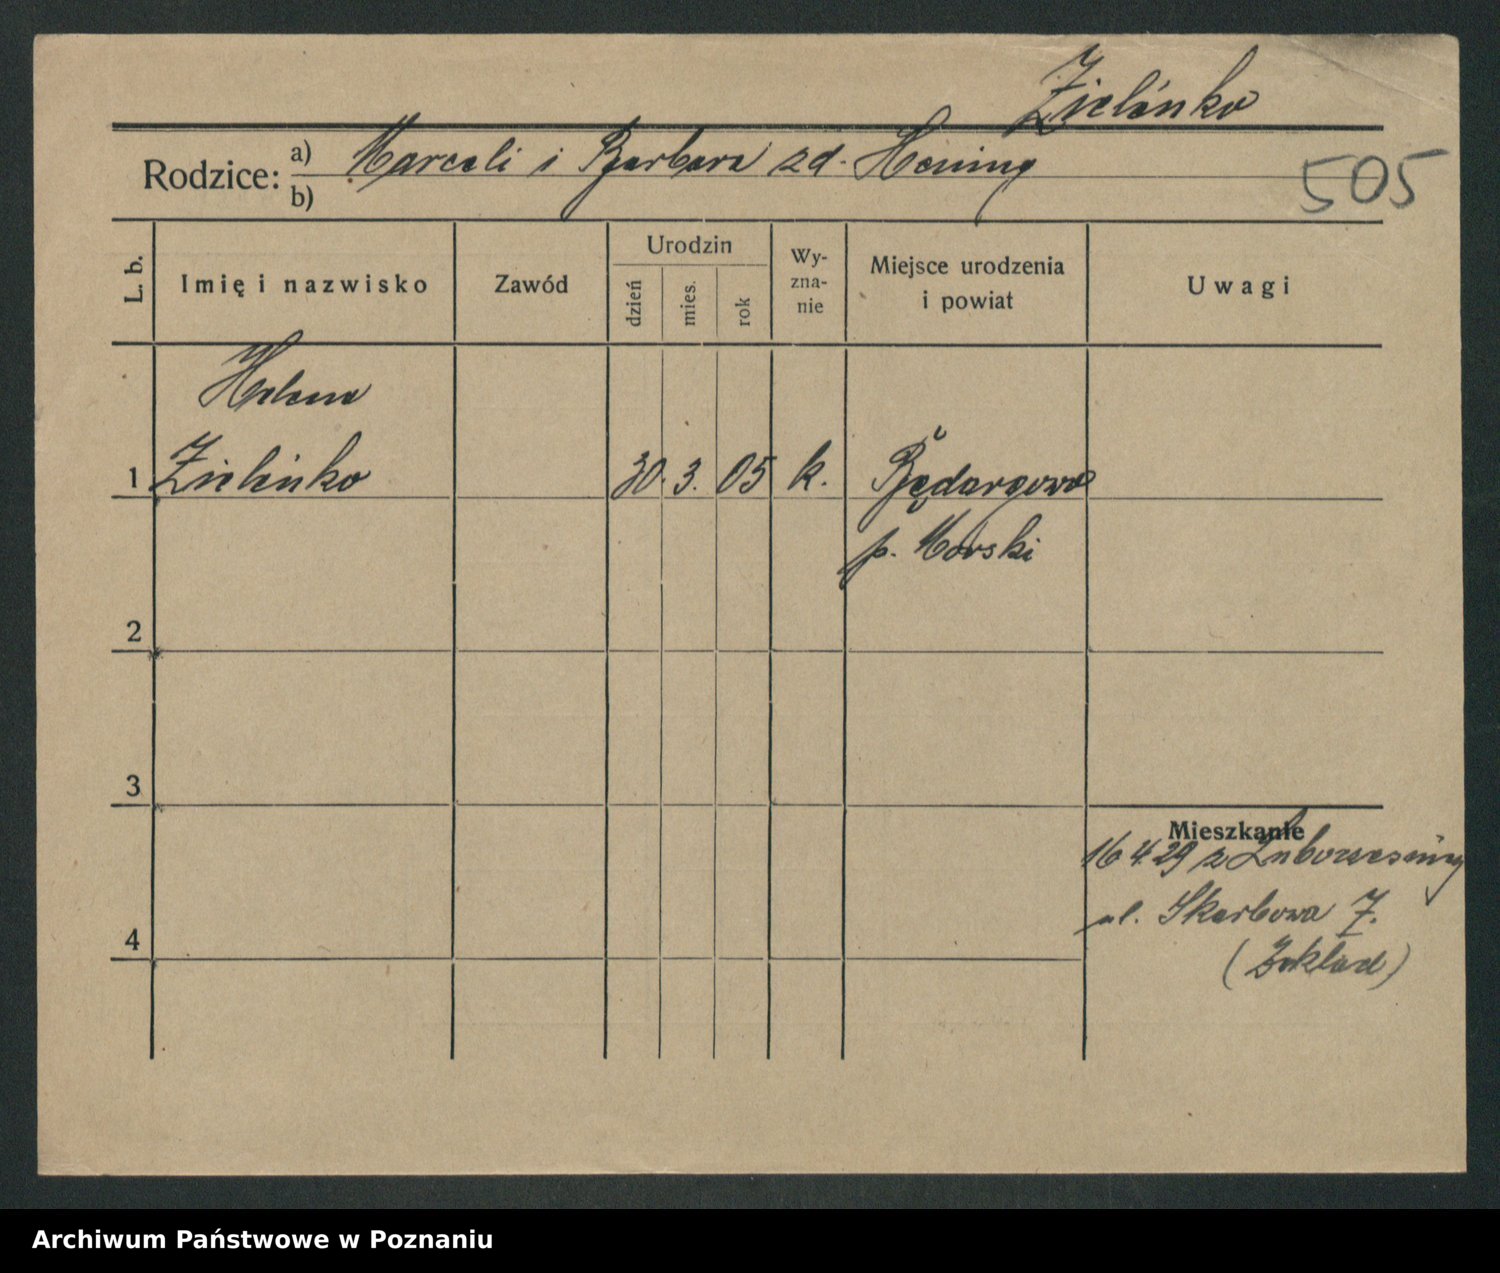 Zielinko
Rodzice: a) Marceli i Barbara zd. Hening
b)
505
L. b.
Imię i nazwisko
Zawód
Urodzin
dzień
mies.
rok
Wy-
zna-
nie
Miejsce urodzenia
i powiat
Uwagi
Helena
1 Zielinko 30. 3. 05 k. Będargowo
p. Morski
2
3
Mieszkanie
16 4 29 z
ul. Skarbowa 7.
4
(Zakład)
Archiwum Państwowe w Poznaniu